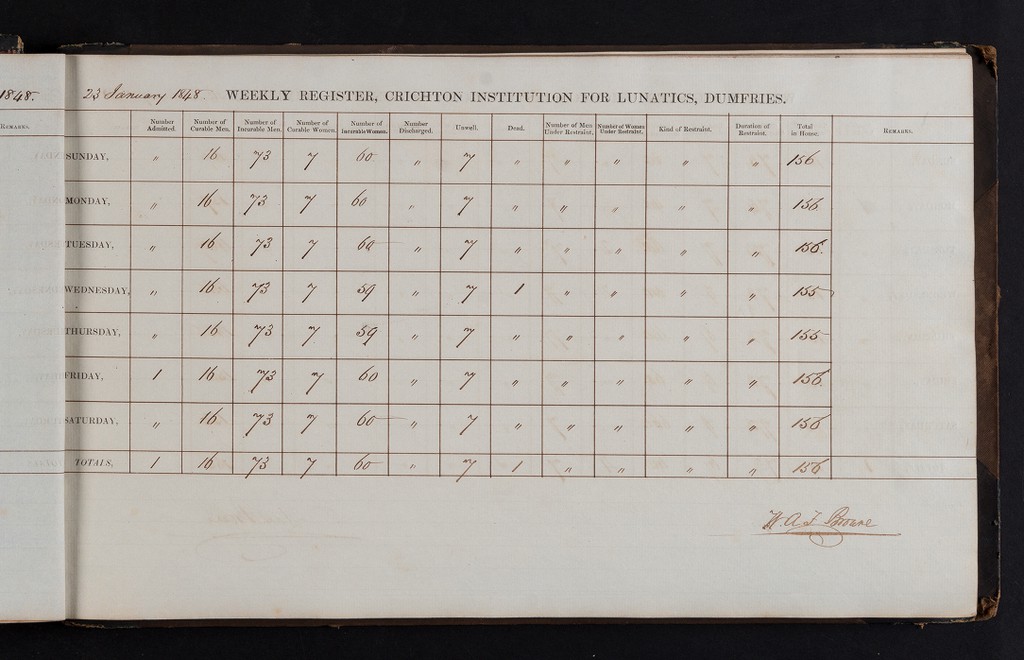 1848.
23 January 1848. WEEKLY REGISTER, CRICHTON INSTITUTION FOR LUNATICS, DUMFRIES.
REMARKS. Number Admitted. Number of Curable Men. Number of Incurable Men. Number of Curable Women. Number of Incurable Women. Number Discharged. Unwell. Dead. Number of Men Under Restraint. Number of Women Under Restraint. Kind of Restraint. Duration of Restraint. Total in House. REMARKS.
SUNDAY, " 16 73 7 60 " 7 " " " " " 156
MONDAY, " 16 73 7 60 " 7 " " " " " 156
TUESDAY, " 16 73 7 60 " 7 " " " " " 156.
WEDNESDAY, " 16 73 7 59 " 7 1 " " " " 155
THURSDAY, " 16 73 7 59 " 7 " " " " " 155
FRIDAY, 1 16 73 7 60 " 7 " " " " " 156
SATURDAY, " 16 73 7 60 " 7 " " " " " 156
TOTALS, 1 16 73 7 60 " 7 1 " " " " 156
W. A. F. Browne